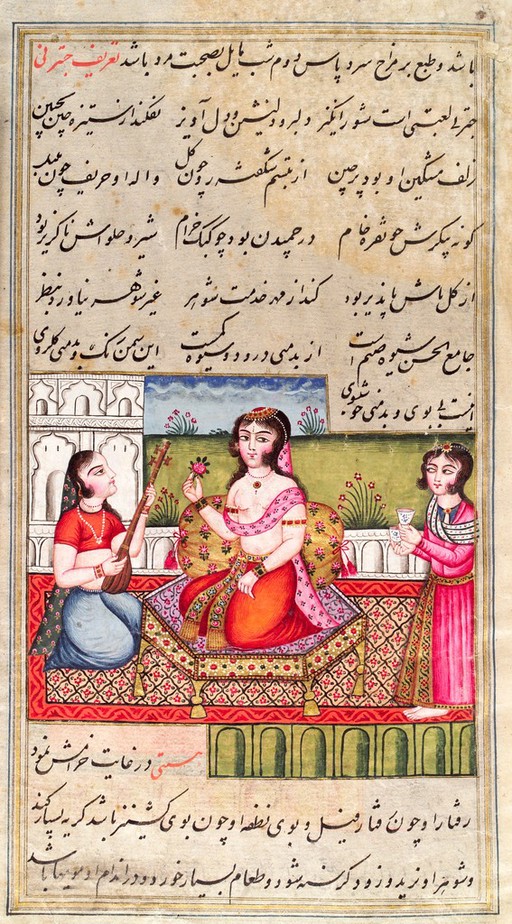 باشد و طبع بر مزاح سرد پاس دوم شب مایل بصحبت مرد باشد تعریف چترنی
چترنی لعبتی است شور انگیز دلبر و دلنشین و دل آویز
زلف مشکین او بود پرچین از تبسم شگفته رو چون گل واله او حریف چون بلبل
گونه پیکرش چو نقره خام در چمیدن بود چو کبک خرام شیر و حلواش ناگزیر بود
از کل ماش پاپذیر بود کند از مهر خدمت شوهر غیر شوهر نیاورد بنظر
جامع الحسن شیوه صنم است از بدمنی درو دو شیوه کمست این سمن رنگ و بدمنی گلروی
اینست بی بوی و بدمنی خوشبوی
هستنی در غایت خرامش نمود
رفتار او چون رفتار فیل و بوی نطفه او چون بوی گشنیز باشد گریه بسیار کند
و شوهر او نزید و زود گرسنه شود و طعام بسیار خورد و در اندام او مویها باشد